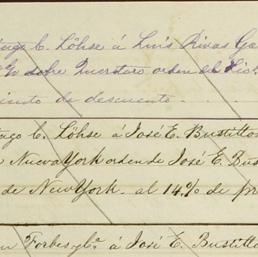 C. Löhse á Luis Rivas
sobre Queretaro orden del
de descuento
C. Löhse á José E. Bustillos
Nueva York orden de José E. Bus
de New York al 14% de pr
Forbes y Cª á José E. Bustillo